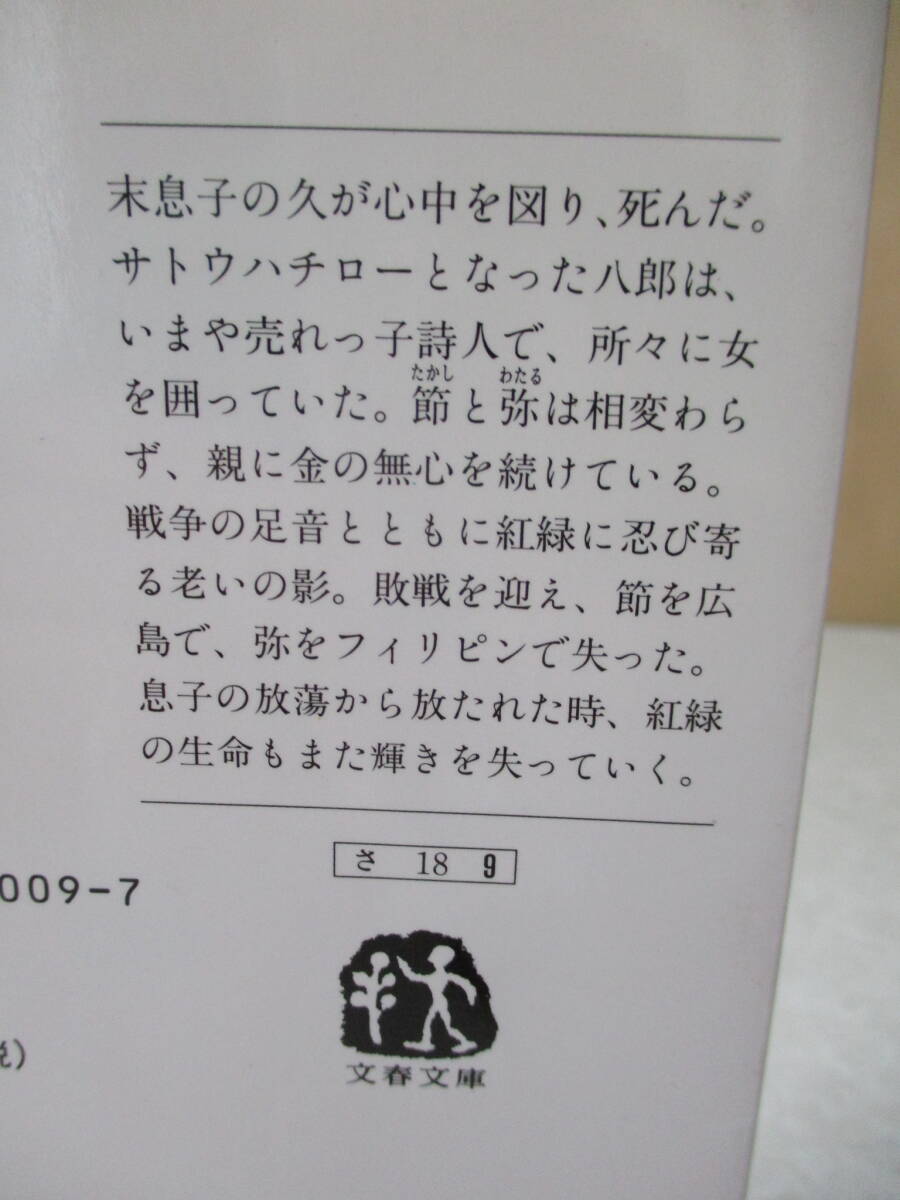 末息子の久が心中を図り、死んだ。
サトウハチローとなった八郎は、
いまや売れっ子詩人で、所々に女
たかし わたる
を囲っていた。節と弥は相変わら
ず、親に金の無心を続けている。
戦争の足音とともに紅緑に忍び寄
る老いの影。敗戦を迎え、節を広
島で、弥をフィリピンで失った。
息子の放蕩から放たれた時、紅緑
の生命もまた輝きを失っていく。
さ 18 9
009-7
税)
文春文庫